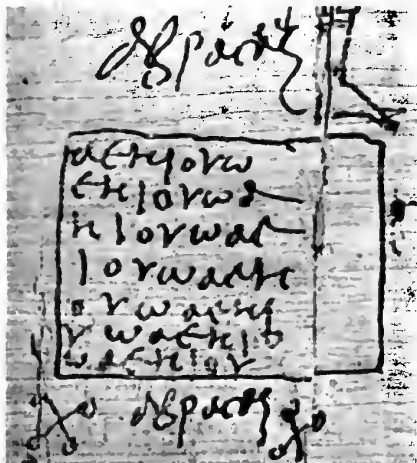 αβραϲαξ
αεηιουω
εηιουωα
ηιουωαε
ιουωαεη
ουωαεηι
υωαεηιο
ωαεηιου
αβραϲαξ